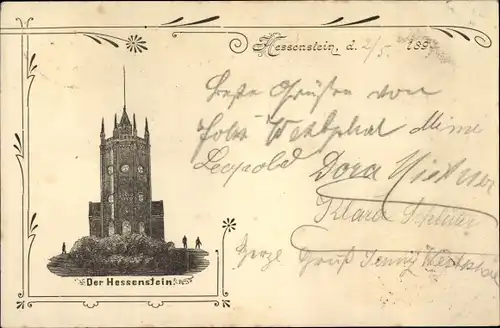 Hessenstein, d. 2/5. 189
Beste Grüße von
Westphal Mimi
Leopold Dora
Klara
Herzl Gruß Jenny Westphal
Der Hessenstein.